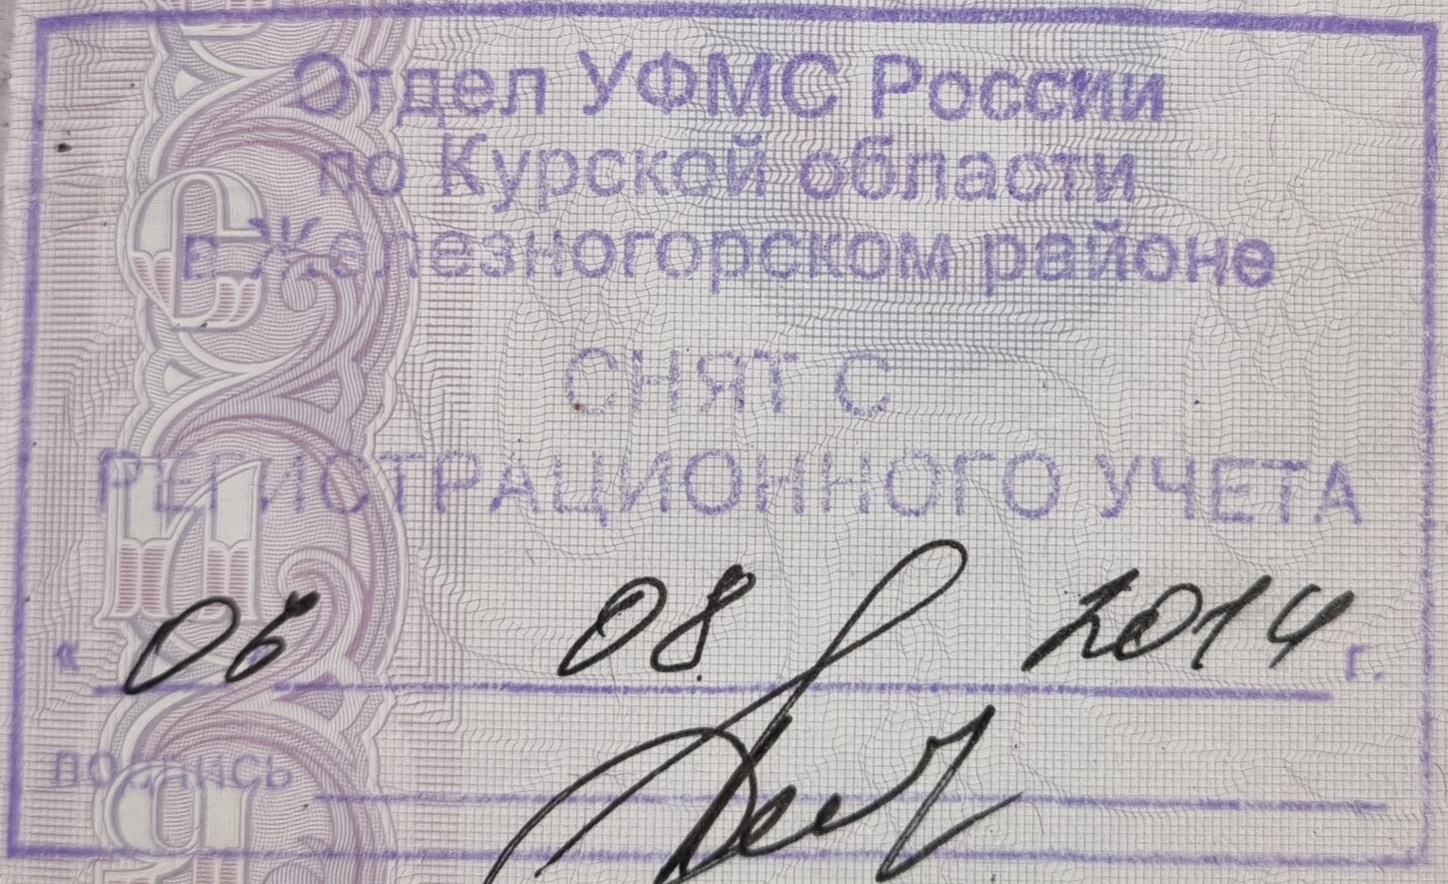 Отдел УФМС России
по Курской области
в Железногорском районе
СНЯТ С
РЕГИСТРАЦИОННОГО УЧЕТА
« 06 » 08 2014 г.
подпись